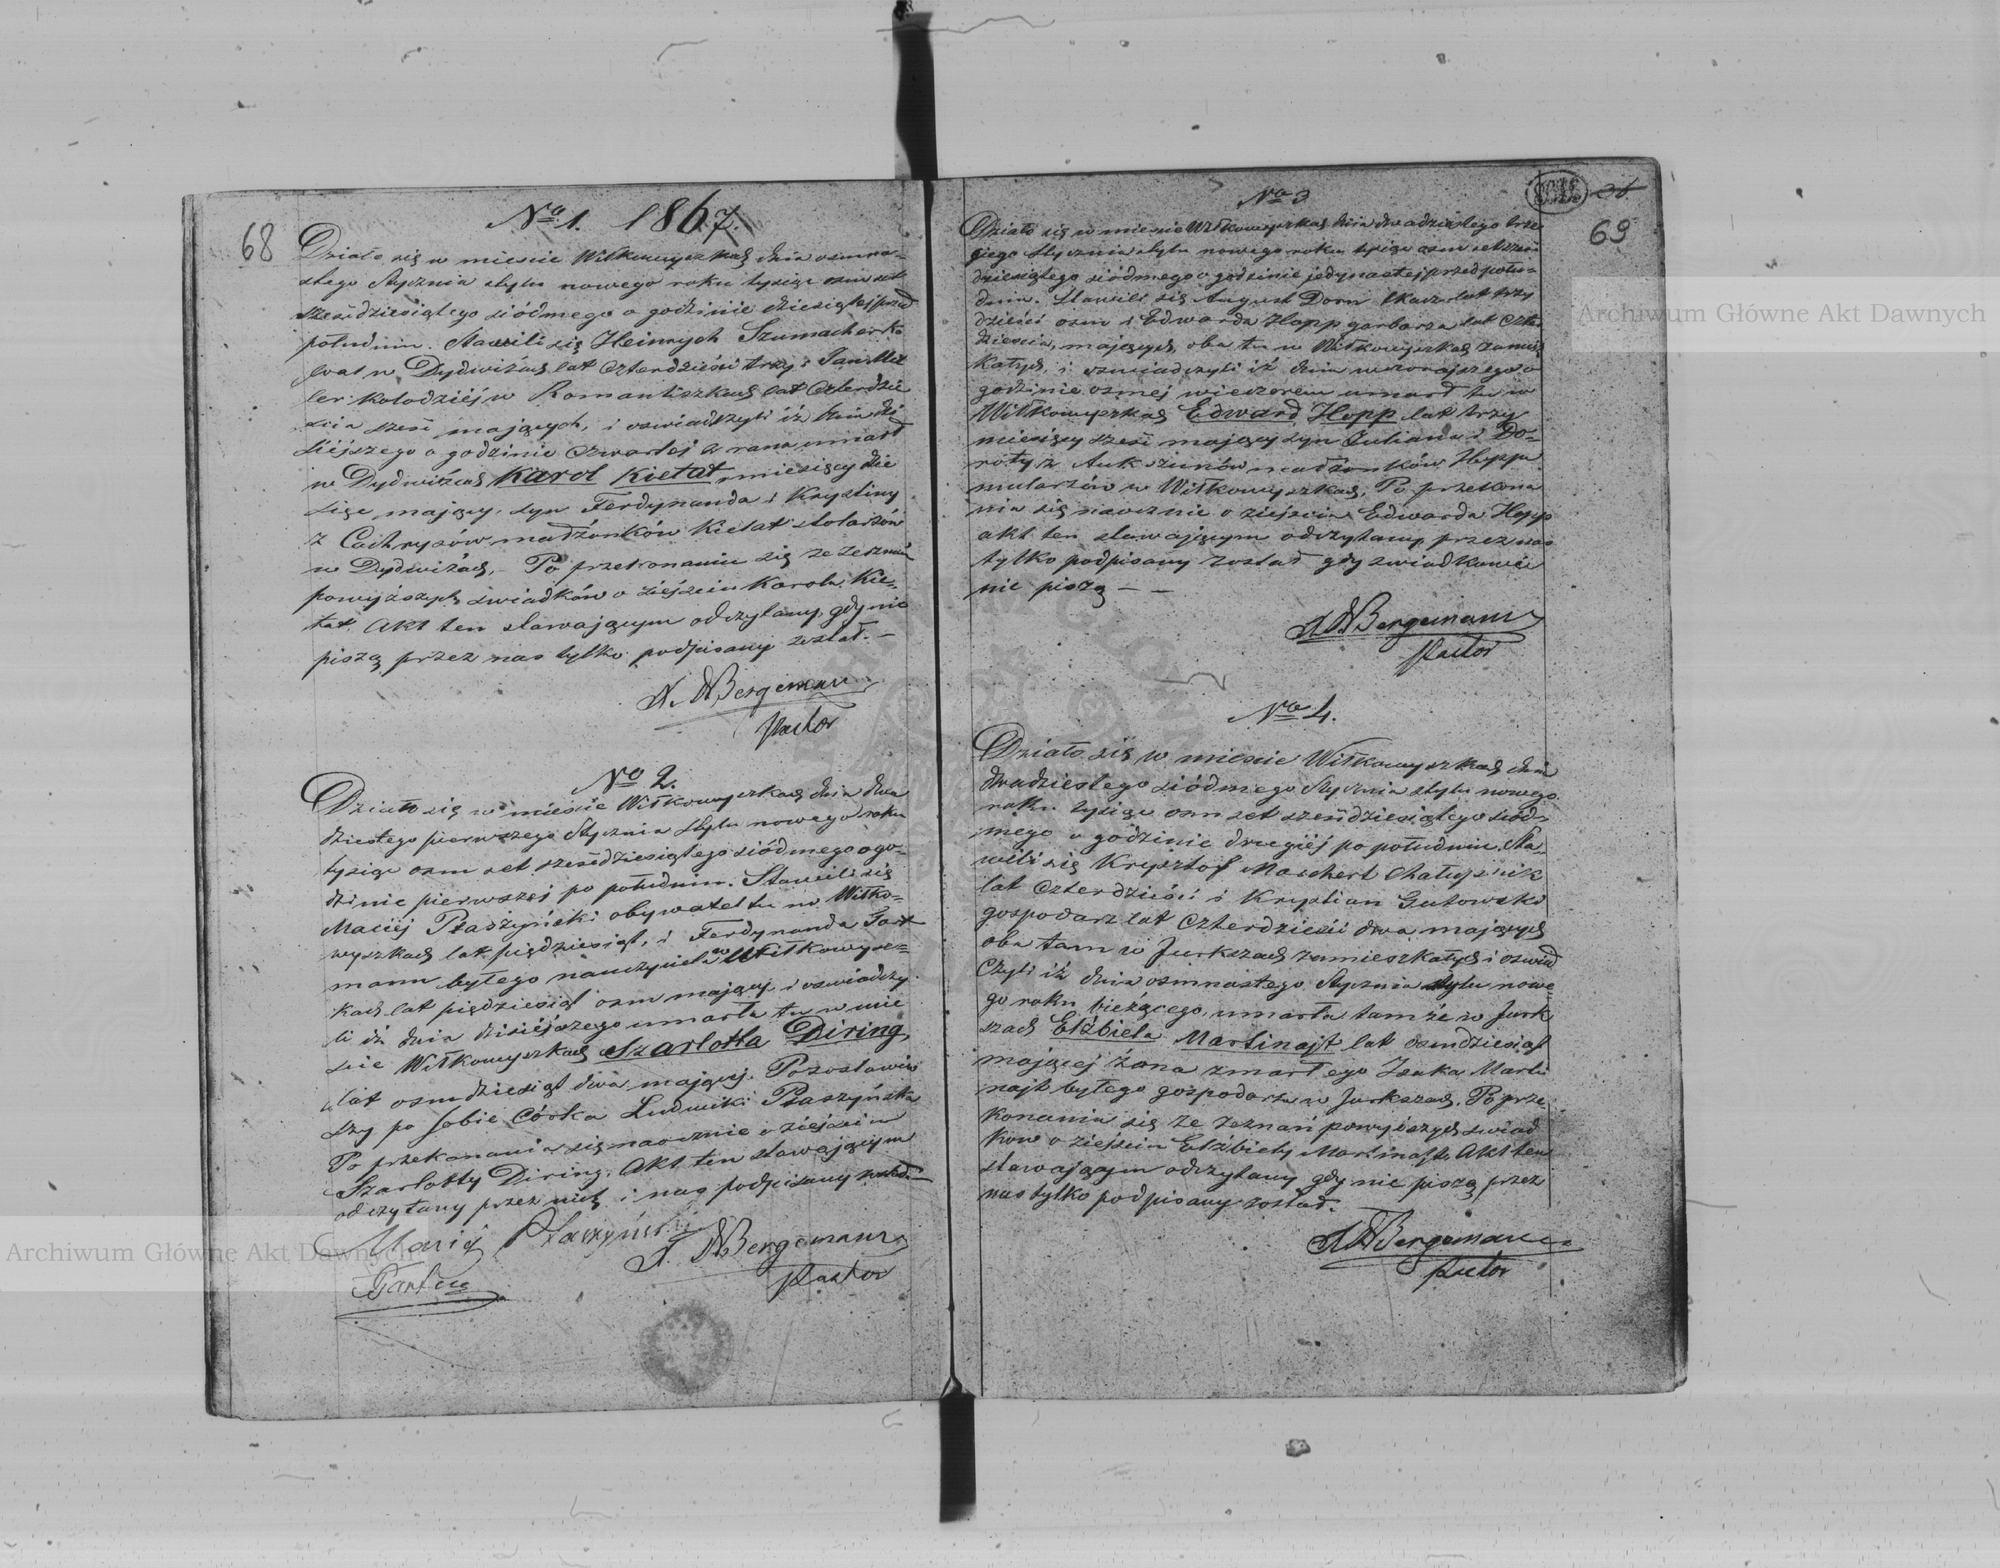 68
No 1. 1867.
Działo się w mieście Wiłkowyszkach dnia osmna-
stego Stycznia stylu nowego roku tysiąc osm set
sześdziesiątego siódmego o godzinie dziesiątej przed
południu. Stawili się Heinrych Szumacher ko
wal w Dydwiżach lat czterdzieści trzy i Jan Mil
ler kołodziej w Romantiszkach lat czterdzie
ścia sześć mających, i oswiadczyli iż dnia dzi
siéjszego o godzinie czwartej z rana umarł
w Dydwiżach Karol Kietat, miesięcy dzie
sięc mający, syn Ferdynanda i Krystiny
z małżonków Kietat stolarzów
w Dydwiżach, - Po przekonaniu się ze zeznań
powyższych swiadków o zéjściu Karola Kie-
tat. Akt ten stawającym odczytany, gdy nie
piszą przez nas tylko podpisany został. -
A. W Bergemann
Pastor
No 2.
Działo się w mieście Wiłkowyszkach dnia dwu
dziestego pierwszego Stycznia stylu nowego roku
tysiąc osm set sześdziesiątego siódmego o go-
dzinie pierwszéj po południu. Stawili się
Maciéj Płaszyński obywatel tu w Wiłko-
wyszkach lat pięćdziesiąt, i Ferdynanda Gart
mann byłego nauczyciela w Wiłkowysz-
kach lat pięćdziesiąt osm mający, i oswiadczy
li iż dnia dzisiéjszego umarła tu w mie
ście Wiłkowyszkach Szarlotta Diring
lat osmdziesiąt dwa mającej. Pozostawiw
szy po sobie Córka Ludwiki Płaszyńska
Po przekonania się naocznie o zéjściu
Szarlotty Diring. Akt ten stawającym
odczytany przez nich i nas podpisany został. -
Maciéj Płaszyński A. W Bergemann
Pastor
No 3
69
Działo się w mieście Wiłkowyszkach dnia dwudziestego trze
ciego Stycznia stylu nowego roku tysiąc osm set sześć
dziesiątego siódmego o godzinie jedynastej przed połu-
dniu. Stawili się August Dorn tkacz lat trzy
dzieści osm i Edwarda Hopp garbarza lat czter
dzieścia, mających, oba tu w Wiłkowyszkach zamiesz
kałych, i oswiadczyli iż dnia wczorajszego o
godzinie osméj wieczorem umarł tu w
Wiłkowyszkach Edward Hopp lat trzy
miesięcy sześć mający syn Juliana i Do-
roty z małżonków Hopp
mularzów w Wiłkowyszkach, Po przekona
nia się naocznie o zéjściu Edwarda Hopp
akt ten stawającym odczytany przez nas
tylko podpisany został gdy swiadkowie
nie piszą - -
A W Bergemann
Pastor
No 4.
Działo się w mieście Wiłkowyszkach dnia
dwudziestego siódmego Stycznia stylu nowego
roku tysiąc osm set sześdziesiątego siód-
mego o godzinie drugiéj po południu. Sta-
wili się Krysztof Maschert chałupnik
lat czterdzieści i Krystian Gutowski
gospodarz lat czterdzieści dwa mających
oba tam w Jurkszach zamieszkałych i oswiad
czyli iż dnia osmnastego Stycznia stylu nowe-
go roku bieżącego, umarła tamże w Jurk
szach Elżbieta Martinajt lat osmdziesiąt
mającéj żona zmarłego Izaka Marti
najt byłego gospodarza w Jurkszach. Po prze-
konania się ze zeznań powyższych swiad
ków o zéjściu Elżbiety Martinajt. Akt ten
stawającym odczytany gdy nie piszą przez
nas tylko podpisany został.
A W Bergemann
Pastor
Archiwum Główne Akt Dawnych
Archiwum Główne Akt Dawnych